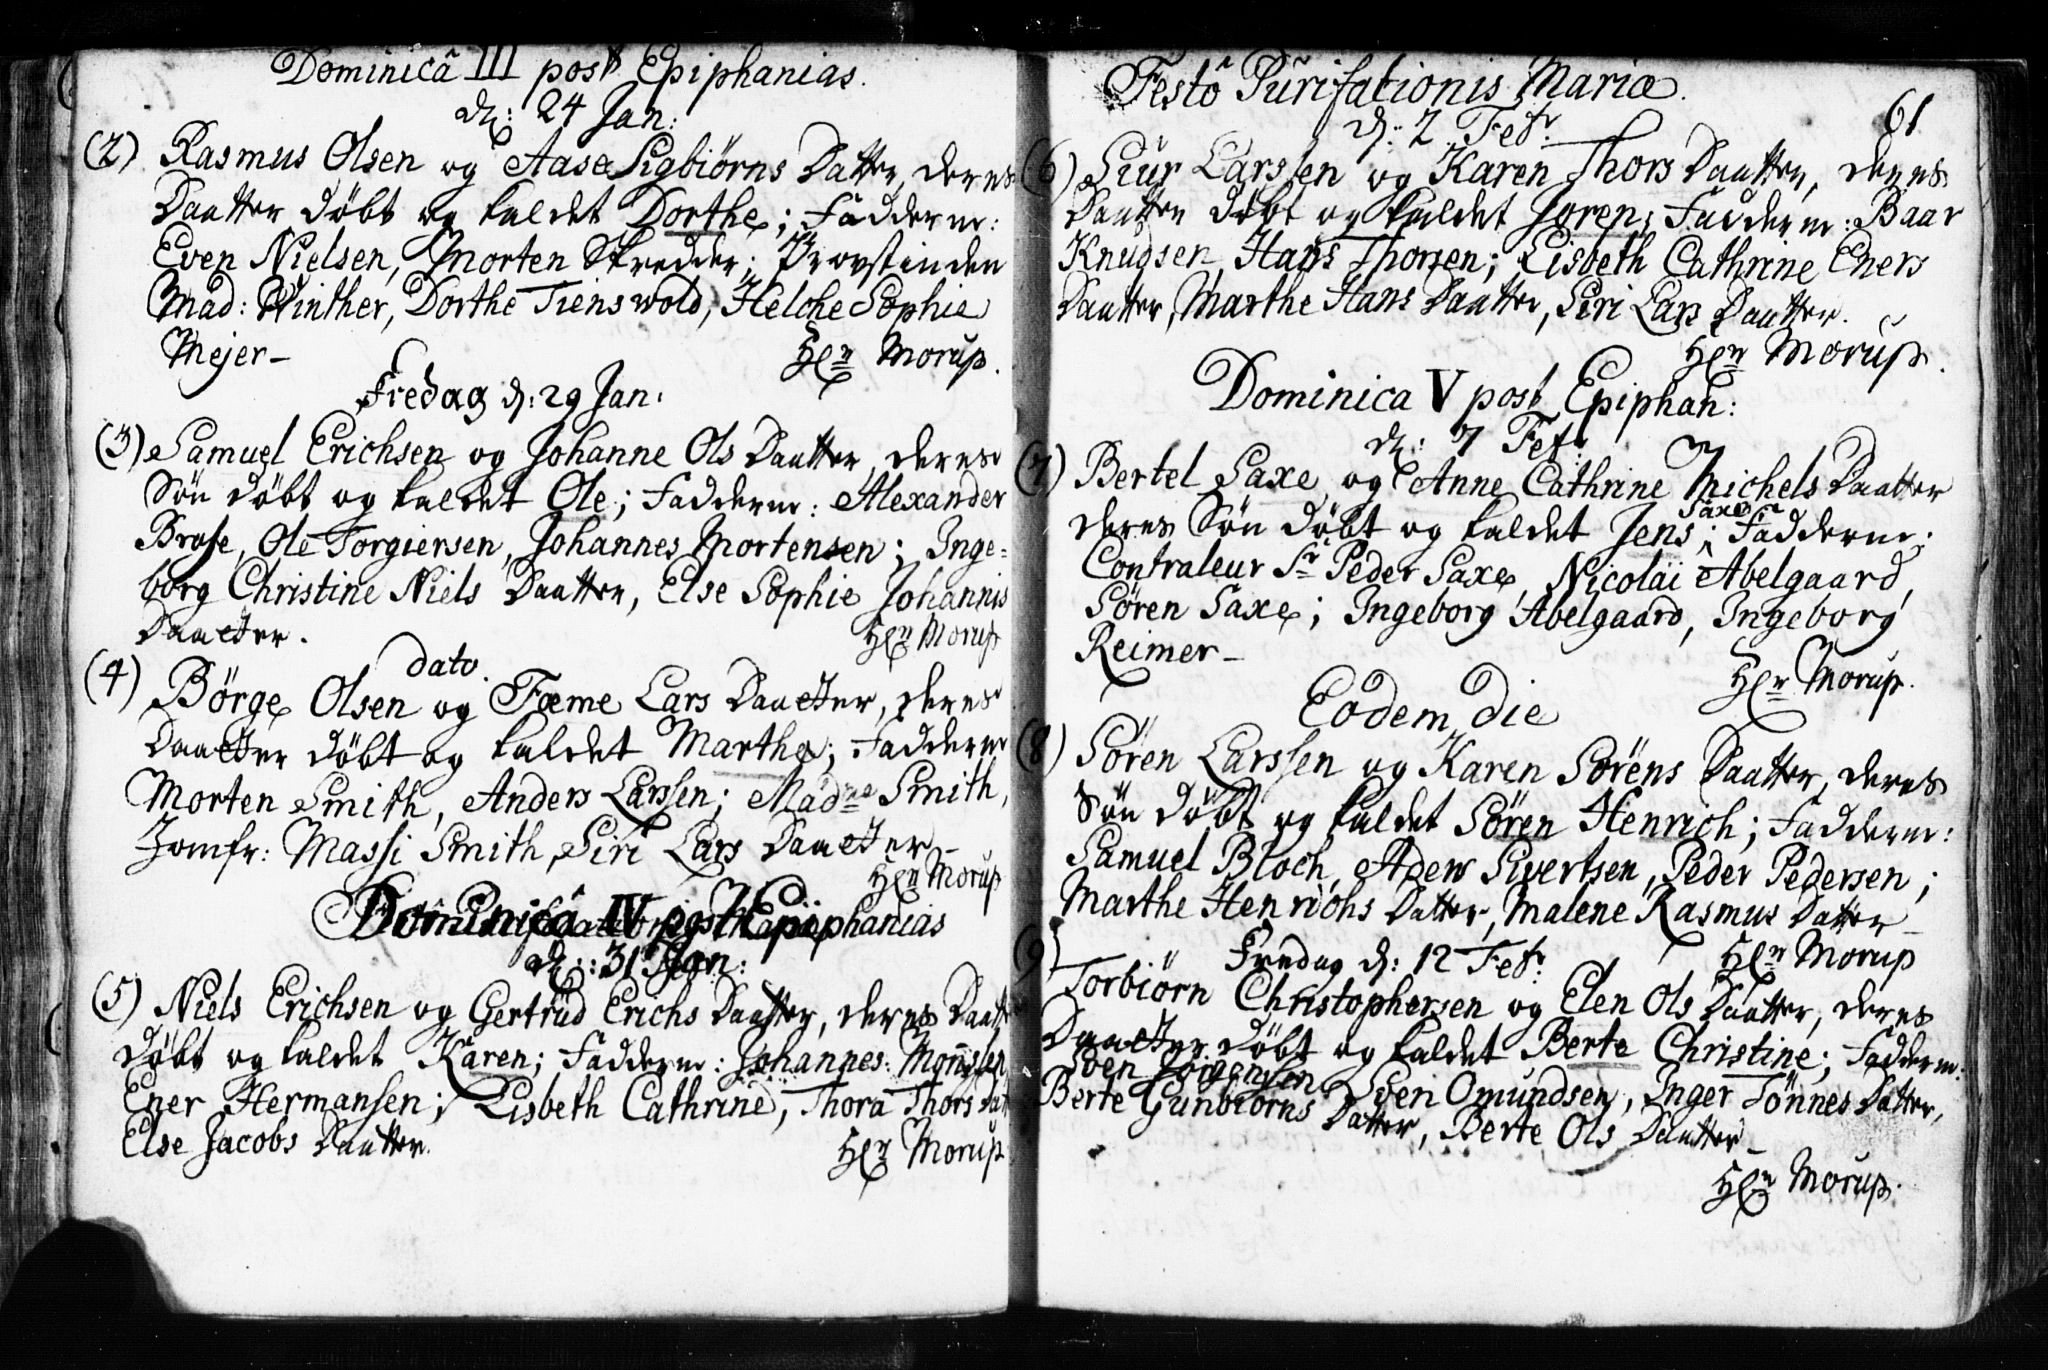 Dominicâ III post Epiphanias.
d: 24 Jan:
(2) Rasmus Olsen og Aase Sigbiørns Datter, deres
Daatter døbt og kaldet Dorthe; Fadderne:
Even Nielsen, Morten Skredder; Provstinden
Mad: Winther, Dorthe Tienswold, Helche Sophie
Mejer_ Hr Morup.
Fredag d: 29 Jan:
(3) Samuel Erichsen og Johanne Ols Daatter, deres
Søn døbt og kaldet Ole; Fadderne: Alexander
Brose, Ole Torgiersen, Johannes Mortensen; Inge=
borg Christine Niels Daatter, Else Sophie Johannis
Daatter. Hr Morup
dato.
(4) Børge Olsen og Fæme Lars Daatter, deres
Daatter døbt og kaldet Marthe; Fadderne
Morten Smith, Anders Larssen; Madme Smith,
Jomfr: Massi Smith, Siri Lars Daatter_
Hr Morup
Dominicâ IV post Epiphanias
d: 31 Jan:
(5) Niels Erichsen og Gertrud Erichs Daatter, deres Daatt
døbt og kaldet Karen; Fadderne: Johannes Monssen
Ener Hermansen; Lisbeth Cathrine, Thora Thors Dat
Else Jacobs Daatter. Hr Morup
61
Festô Purifationis Mariæ.
d: 2 Febr:
(6) Siur Larssen og Karen Thors Daatter, deres
Daatter døbt og kaldet Joren; Fadderne: Baar
Knudsen, Hans Thorsen; Lisbeth Cathrine Eners
Daatter, Marthe Hans Daatter, Siri Lars Daatter.
Hr Morup.
Dominica V post Epiphan:
d: 7 Febr:
(7) Bertel Saxe og Anne Cathrine Michels Daatter
deres Søn døbt og kaldet Jens Saxe; Fadderne:
Contraleur Sr Peder Saxe, Nicolai Abelgaard,
Søren Saxe; Ingeborg Abelgaard, Ingeborg
Reimer_ Hr Morup.
Eodem die
(8) Søren Larssen og Karen Sørens Daatter, deres
Søn døbt og kaldet Søren Henrich; Fadderne:
Samuel Bloch, Aders Sivertsen, Peder Pedersen;
Marthe Henrichs Datter, Malene Rasmus Datter_
Hr Morup
Fredag d: 12 Febr:
9) Torbiørn Christophersen og Elen Ols Daatter, deres
Daatter døbt og kaldet Berte Christine; Fadderne:
Sven Jørgensen, Sven Omundsen, Inger Tønnes Datter,
Berte Gunbiørns Datter, Berte Ols Daatter_
Hr Morup.